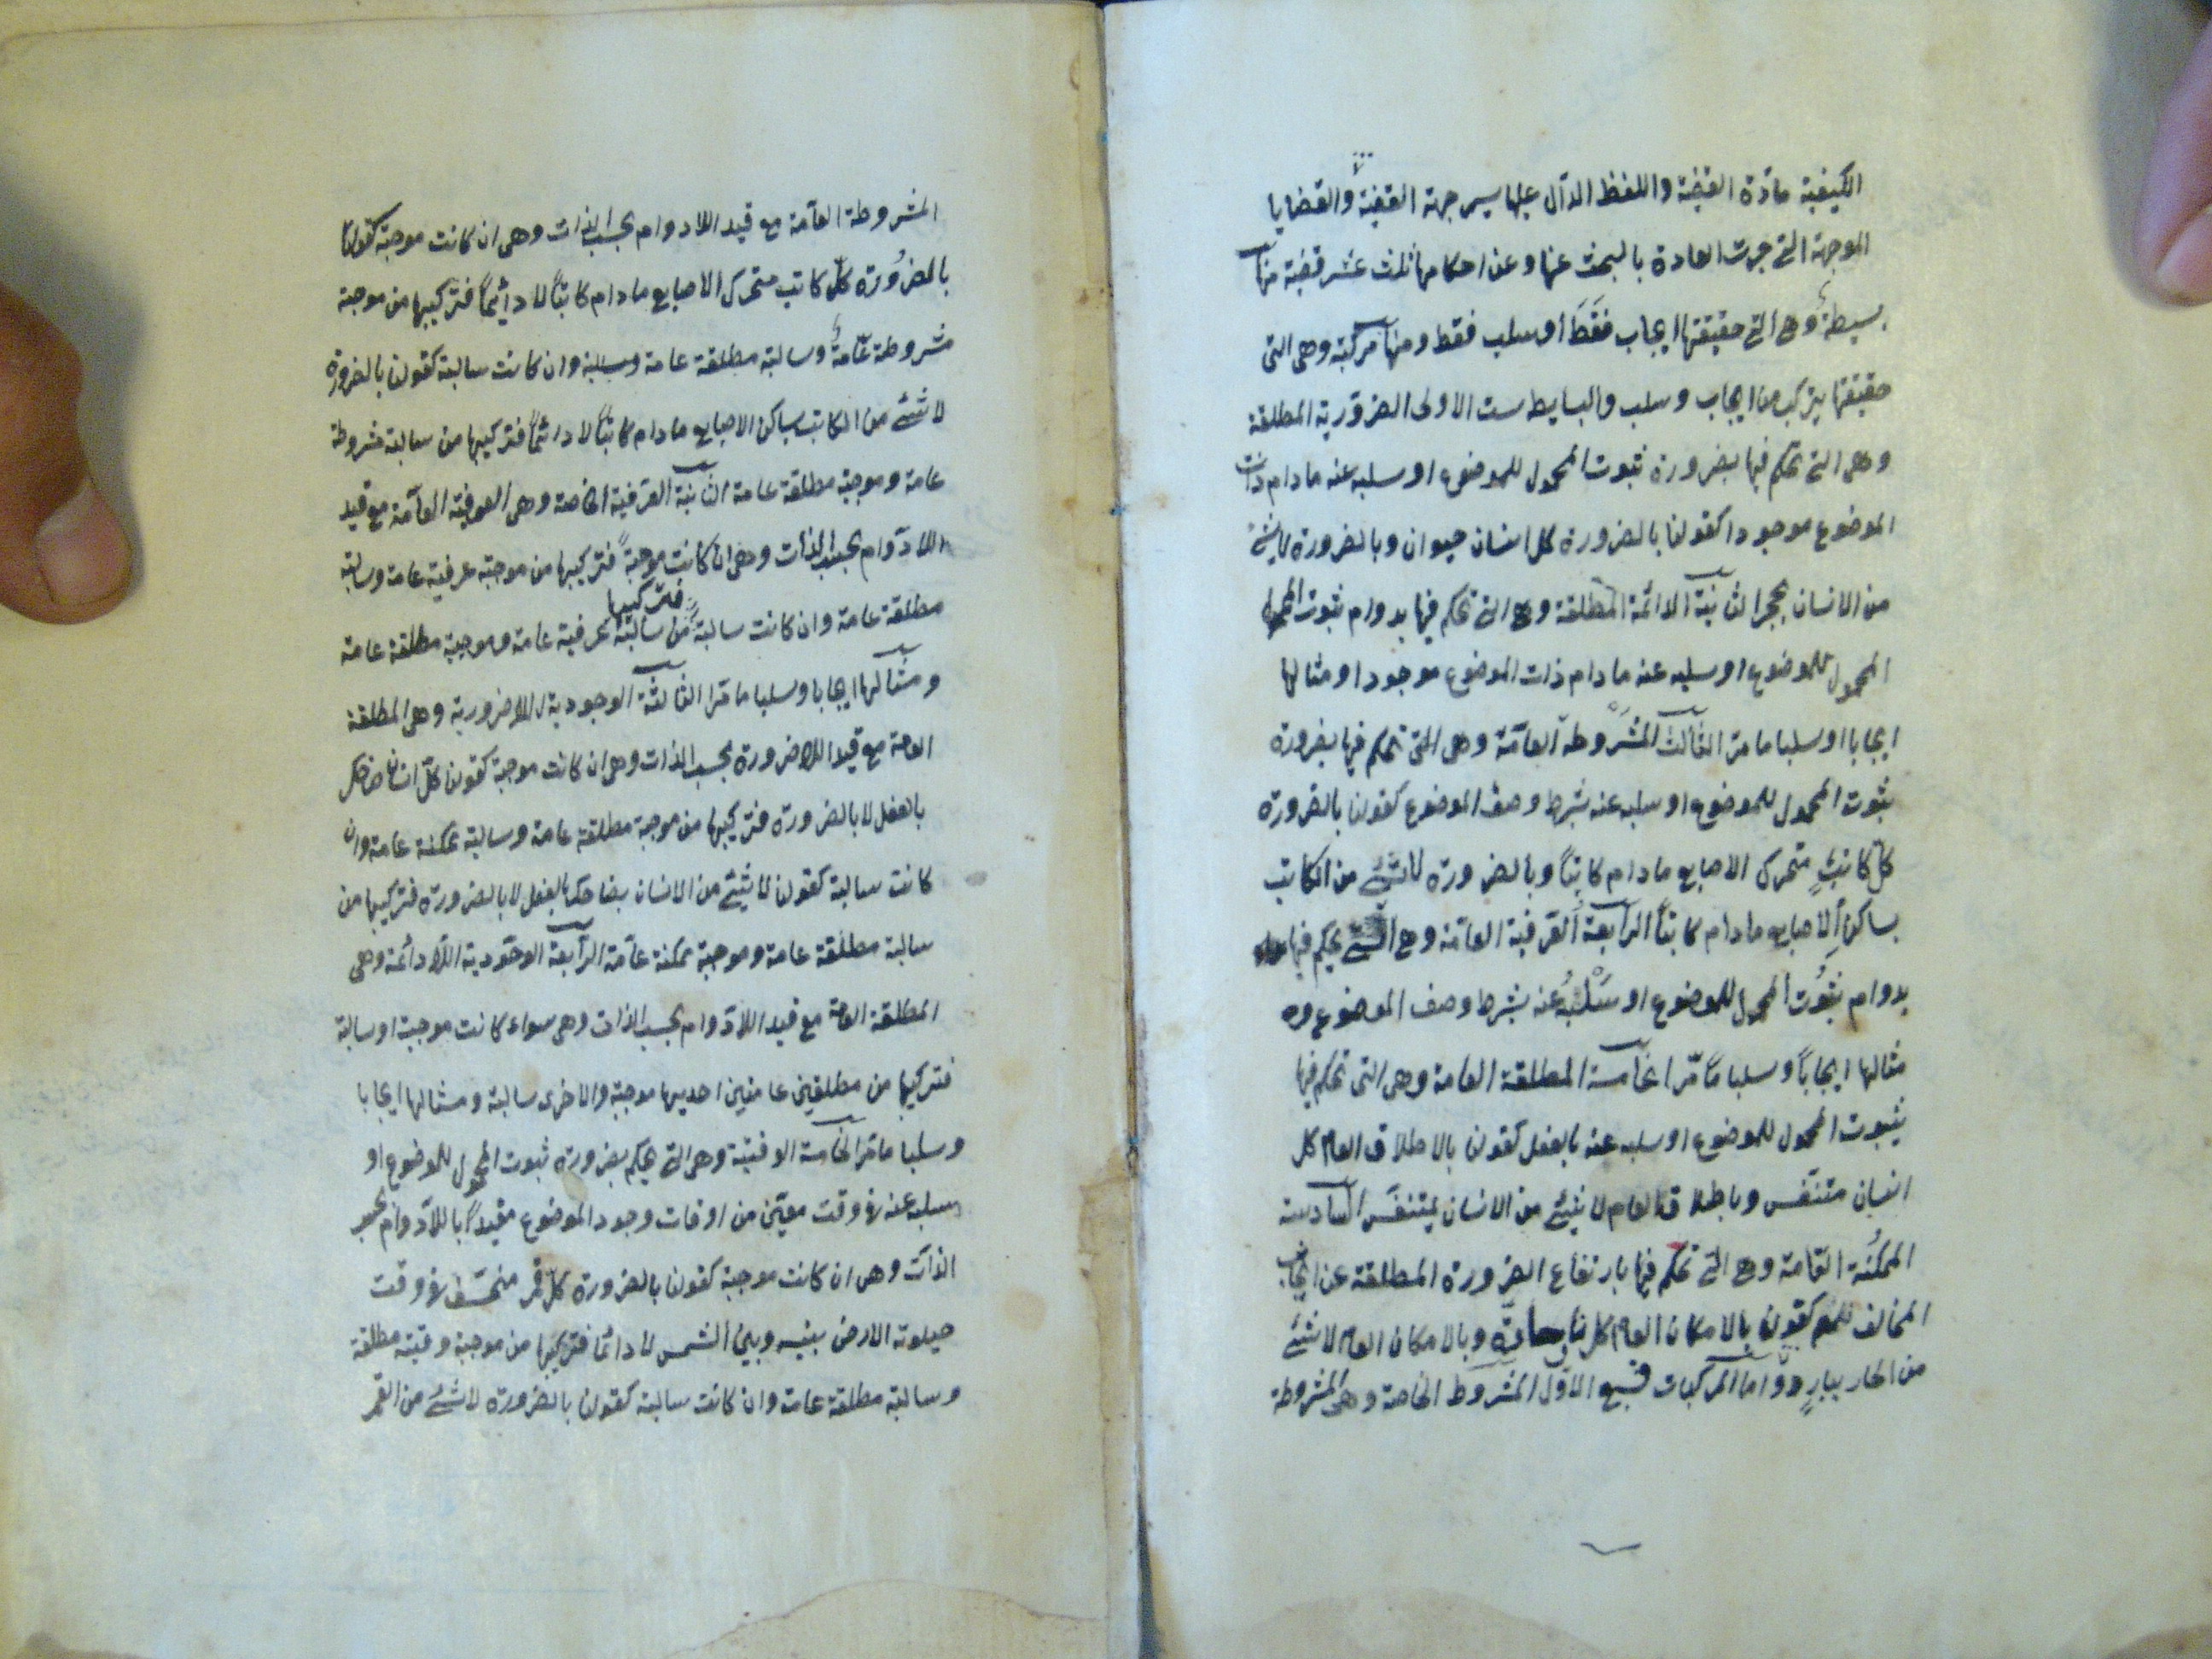 الكيفية مادّة القضية واللفظ الدالّ عليها يسمى جهة القضية والقضايا
الموجهة التى جرت العادة بالبحث عنها وعن احكامها ثلث عشر قضية منها
بسيطة وهى التى حقيقتها ايجاب فقط او سلب فقط ومنها مركبة وهى التى
حقيقتها يتركب من ايجاب وسلب والبسايط ست الاولى الضرورية المطلقة
وهى التى تحكم فيها بضرورة ثبوت المحمول للموضوع او سلبه عنه مادام ذات
الموضوع موجودا كقولنا بالضرورة كل انسان حيوان وبالضرورة لا شئ
من الانسان بحجر الثانية الدائمة المطلقة وهى التى تحكم فيها بدوام ثبوت
المحمول للموضوع او سلبه عنه مادام ذات الموضوع موجودا ومثالها
ايجابا او سلبا ما مر الثالث المشروطة العامّة وهى التى تحكم فيها بضرورة
ثبوت المحمول للموضوع او سلبه عنه بشرط وصف الموضوع كقولنا بالضرورة
كلّ كاتبٍ متحرك الاصابع مادام كاتباً وبالضرورة لا شئ من الكاتب
بساكن الاصابع مادام كاتباً الرابعة العرفية العامّة وهى التى يحكم فيها
بدوام ثبوُت المحمول للموضوع او سَلْبُه عنه بشرط وصف الموضوع وه
مثالها ايجاباً وسلبا ما مّر الخامسة المطلقة العامة وهى التى تحكم فيها
بثبوت المحمول للموضوع او سلبه عنه بالفعل كقولنا بالاطلاق العام كل
انسان متنفس وباطلاق العام لا شئ من الانسان بمتنفس السادسة
الممكنة العامة وهى التى تحكم فيها بارتفاع الضرورة المطلقة عن الجانب
المخالف للحكم كقولنا بالامكان العام كل نار حارّة وبالامكان العام لا شئ
من الحار ببارد وامّا المركبات فسبع الاوّل المشروط الخاصة وهى المشروطة
المشروطة العامّة مع قيد اللادوام بحسب الذات وهى ان كانت موجبة كقولنا
بالضرُورة كلّ كاتب متحرك الاصابع مادام كاتباً لا دائماً فتركيبها من موجبة
مشروطة عامّة وسالبة مطلقة عامة وسلبه وان كانت سالبة كقولنا بالضرورة
لا شئ من الكاتب بساكن الاصابع مادام كاتباً لا دائماً فتركيبها من سالبة مشروطة
عامة وموجبة مطلقة عامة الثانية العرفية الخاصة وهى العرفية العامّة مع قيد
اللادّوام بحسب الذات وهى ان كانت موجبةً فتركيبها من موجبة عرفية عامة وسالبة
فتركيبها
مطلقة عامة وان كانت سالبة من سالبة عرفية عامة وموجبة مطلقة عامة
ومثالها ايجابا وسلبا ما مّر الثالثة الوجودية اللاضرورية وهى المطلقة
العامة مع قيد اللاضرورة بحسب الذات وهى ان كانت موجبة كقولنا كلّ انسان ضاحك
بالفعل لا بالضرورة فتركيبها من موجبة مطلقة عامة وسالبة ممكنة عامة وان
كانت سالبة كقولنا لا شئ من الانسان بضاحك بالفعل لا بالضرورة فتركيبها من
سالبة مطلقة عامة وموجبة ممكنة عامّة الرّابعة الوجودية اللّادائمة وهى
المطلقة العامة مع قيد اللادّوام بحسب الذات وهى سواء كانت موجبة او سالبة
فتركيبها من مطلقتين عامتين احديهما موجبة والاخرى سالبة ومثالها ايجابا
وسلبا ما مّر الخامسة الوقتية وهى التى يحكم بضرورة ثبوت المحمول للموضوع او
سلبه عنه فى وقت معيّن من اوقات وجود الموضوع مقيداً باللّادوام بحسب
الذات وهى ان كانت موجبة كقولنا بالضرورة كلّ قمر منخسف فى وقت
حيلولة الارض بينه وبين الشمس لا دائما فتركيبها من موجبة وقتية مطلقة
وسالبة مطلقة عامة وان كانت سالبة كقولنا بالضرورة لا شئ من القمر